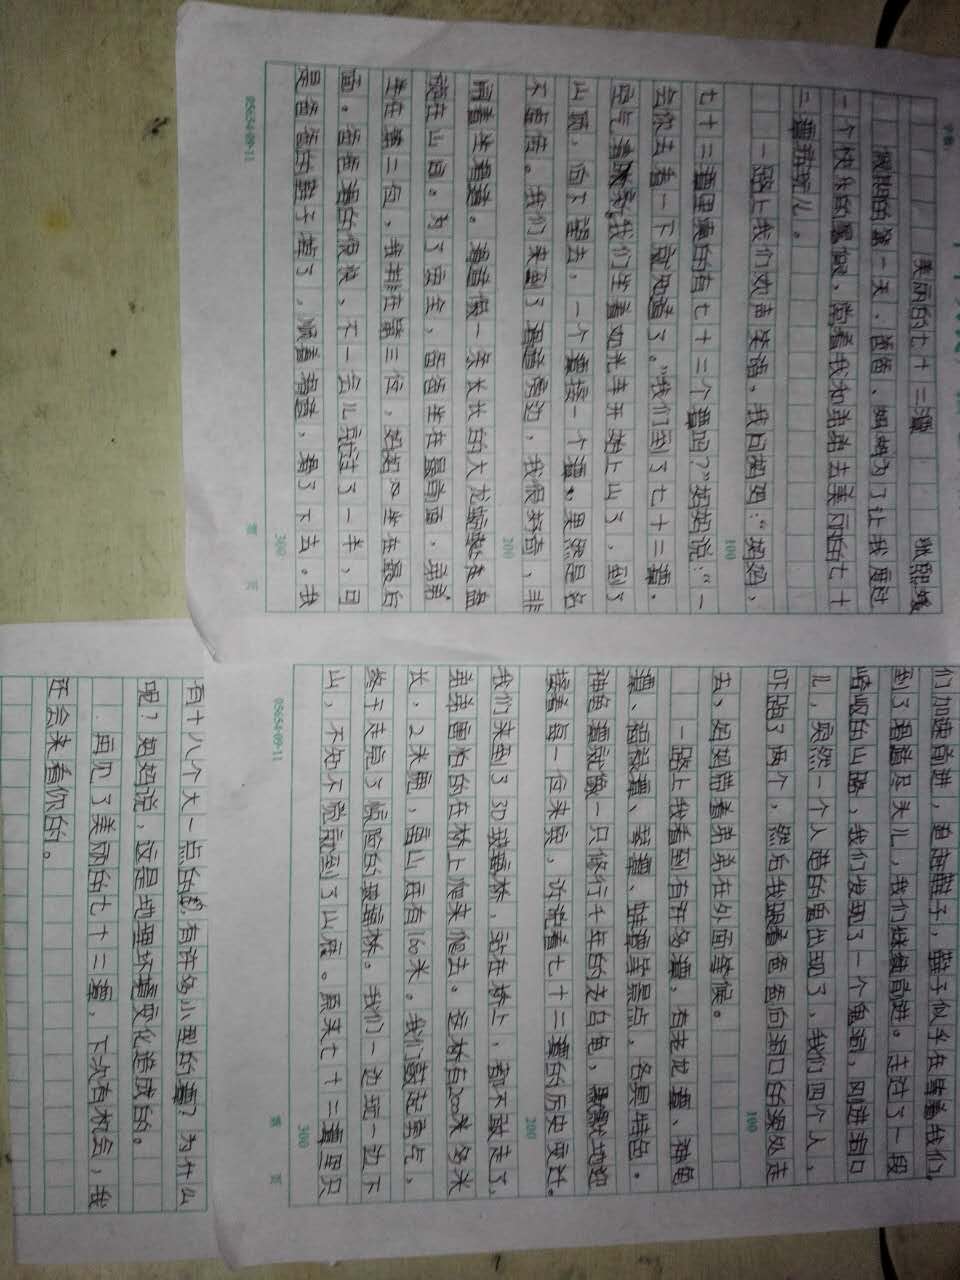 美丽的七十二潭
一个快乐的暑假，带着我和弟弟去美丽的七十
二潭游玩儿。
一路上我们欢声笑语，我问妈妈：“妈妈，
七十二潭里真的有七十二个潭吗？”妈妈说：“一
会你去看一下就知道了。”我们到了七十二潭，
空气清新，我们坐着观光车来到上山了，到了
山顶，向下望去，一个潭接一个潭，果然是名
不虚传。我们来到了滑道旁边，我很好奇，非
闹着坐滑道。滑道像一条长长的大龙蜿蜒在盘
旋在山间。为了安全，爸爸坐在最前面，弟弟
坐在第二位，我排在第三位，妈妈坐在最后
面。爸爸滑的很快，不一会儿就过了一半，可
是爸爸的鞋子掉了，顺着滑道，滑了下去。我
们加速前进，直追鞋子，鞋子似乎在等着我们。
到了滑道尽头儿，我们继续前进。走过了一段
崎岖的山路，我们发现了一个鬼洞，刚进洞口
儿，忽然一个人造的鬼出现了，我们四个人，
吓跑了两个，然后我跟着爸爸向洞口的深处走
去，妈妈陪着弟弟在外面等候。
一路上我看到有许多潭，有龙龙潭、神龟
潭、福禄潭、琴潭、蛙潭等景点，各具特色。
神龟潭就像一只修行千年的老白龟，默默地迎
接着每一位来宾，诉说着七十二潭的历史变迁。
我们来到了3D玻璃桥，站在桥上，都不敢走了，
弟弟害怕的在桥上爬来爬去。这桥有200米多米
长，2米宽，离山底有160米。我们鼓起勇气，
终于走完了惊险的玻璃桥。我们一边玩一边下
山，不知不觉就到了山底。原来七十二潭里只
有十八个大一点的潭，有许多小型的潭？为什么
呢？妈妈说，这是地理环境变化造成的。
再见了美丽的七十二潭，下次有机会，我
还会来看你的。
100
200
300
05654-09-11
第 页
100
200
300
05654-09-11
第 页